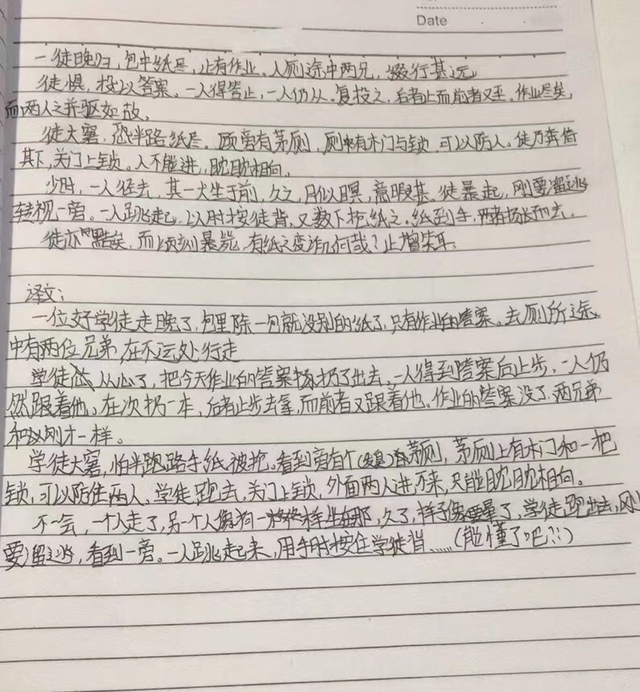 Date
一徒晚归,包中纸尽,止有作业。人厕途中两兄,缀行甚远。
徒惧,投以答案。一人得答止,一人仍从。复投之,后者止而前者又至。作业尽矣,
而两人之并驱如故。
徒大窘,恐半路纸尽。顾旁有茅厕,厕中有木门与锁,可以防人。徒乃奔倚
其下,关门上锁。人不能进,眈眈相向。
少时,一人径去,其一犬坐于前,久之,目似瞑,意暇甚。徒暴起,刚要溜逃
转视一旁。一人跳起,以肘按徒背,又数下抢纸之。纸到手,两者扬长而去。
徒亦黠矣,而顷刻暴毙,有纸之变诈几何哉?止增笑耳。
译文:
一位好学徒走晚了,包里除一包就没别的纸了,只有作业的答案。去厕所途
中有两位兄弟,在不远处行走
学徒从心了,把今天作业的答案扔了出去,一人得到答案后止步,一人仍
然跟着他。在次扔一本,后者止步去拿,而前者又跟着他。作业的答案没了,两兄弟
和以刚才一样。
学徒大窘,怕半路手纸被抢。看到旁有个茅厕,茅厕上有木门和一把
锁,可以防住两人,学徒跑去,关门上锁,外面两人进不来,只能眈眈相向。
不一会,一个人走了,另一个人像狗一样坐在那,久了,样子像睡着了,学徒跑出去,刚
要溜逃,看到一旁。一人跳起来,用手肘按住学徒背……(能懂了吧?!)